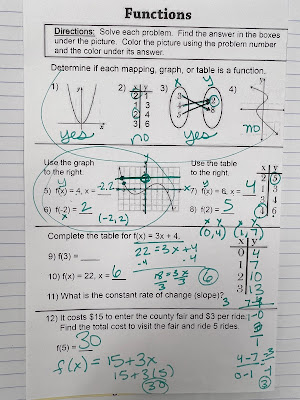 Functions
Directions: Solve each problem. Find the answer in the boxes
under the picture. Color the picture using the problem number
and the color under its answer.
Determine if each mapping, graph, or table is a function.
1) 2) 3) 4)
x y
2 1
1 3
2 4
3 6
yes no yes no
Use the graph
to the right.
5) f(x) = 4, x = -2, 2
6) f(-2) = 2
(-2, 2)
Use the table
to the right.
7) f(x) = 6, x = 4
8) f(2) = 5
x y
2 5
1 3
3 4
4 6
Complete the table for f(x) = 3x + 4.
(0,4) (1,7)
9) f(3) =
22 = 3x + 4
-4 -4
10) f(x) = 22, x = 6
18 = 3x
3 3
6
x y
0 4
1 7
2 10
3 13
11) What is the constant rate of change (slope)? 3
12) It costs $15 to enter the county fair and $3 per ride.
Find the total cost to visit the fair and ride 5 rides.
f(5) = 30
f(x) = 15 + 3x
15 + 3(5)
30
4-7 -3
0-1 -1
3